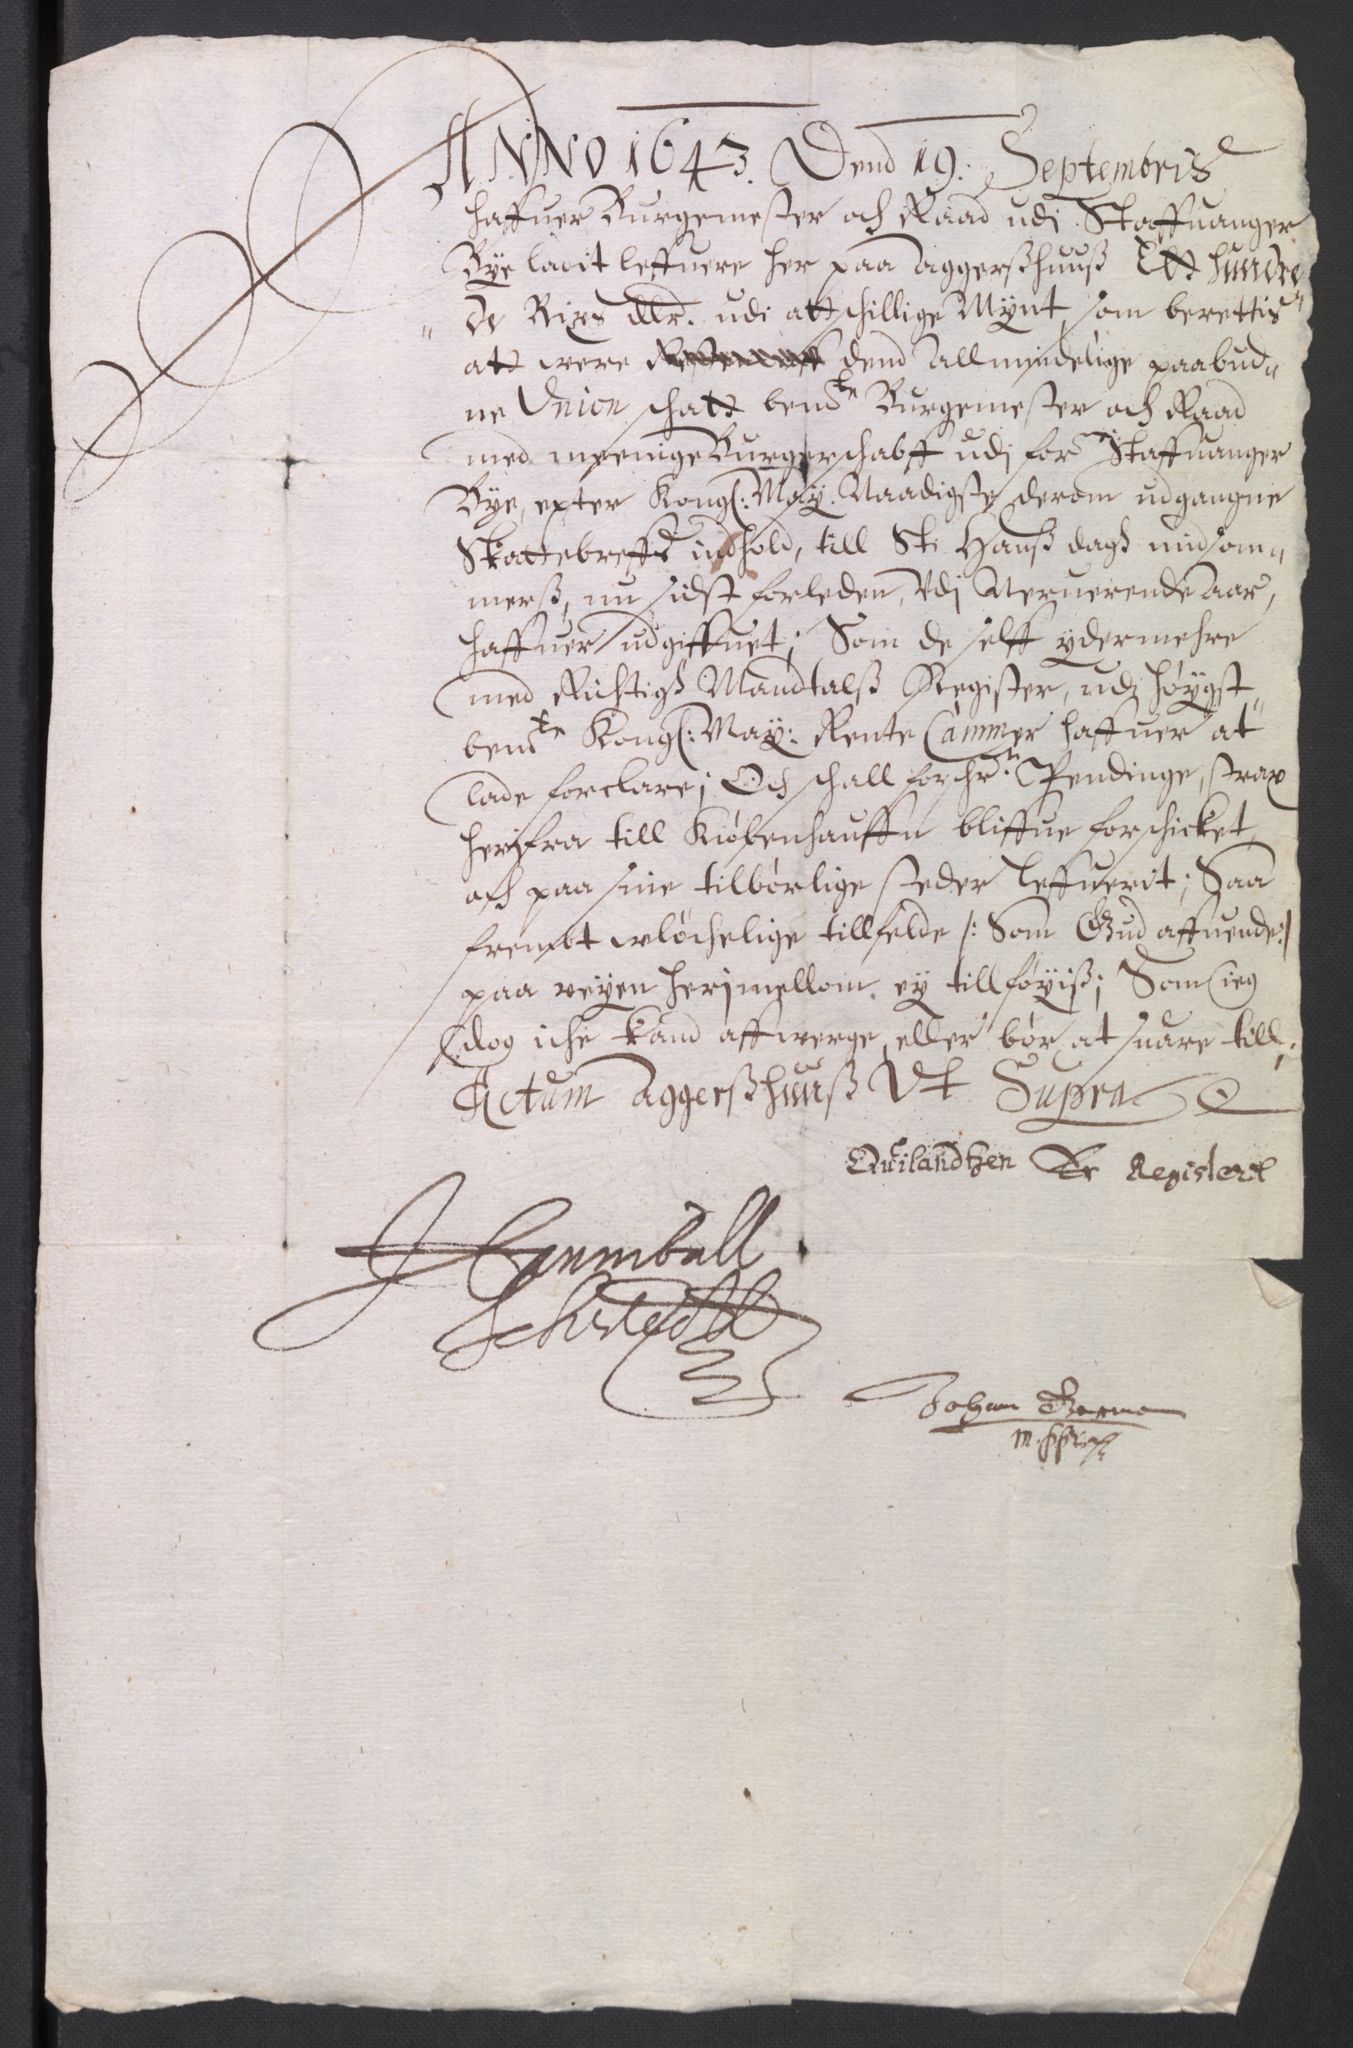 ANNO 1643. Dend 19. Septembris
haffuer Burgemester och Raad udi Staffuanger
Bye ladit leffuere her paa Aggerßhuuß Ett hundre
de Rixs dlr. udi attschillige Mÿnt, som berettis
att vere dend Allmindelige paabud„
ne Vnion schatt bemte Burgemester och Raad
med meenige Burgerschabff udj for Staffuanger
Bye, epter Kongl: May. Naadigste derom udgangne
Skattebreffs indhold, till St. Hanß dagß midsom„
merß, nu sidst forleden, Vdj Neruerende Aar,
haffuer udgiffuet; Som de selff ydermehre
med Richtigß Mandtalß Register, udj høygst„
bemte Kongl: May: Rente Cammer haffuer at
lade forclare; Och schall forschr:ne Pendinge, strax
herifra till Kiøbenhauffn bliffue forschicket,
och paa sine tilbørlige steder leffuerit; Saa
frembt vløchelige tillfelde /: Som Gud affuende:/
paa veyen herimellom ey tillføyiß; Som ieg
dog iche kand affverge, eller bør at suare till;
Actum Aggerßhuuß Vt Supra
Quilandtzen Er Registert
Johan
m. pp